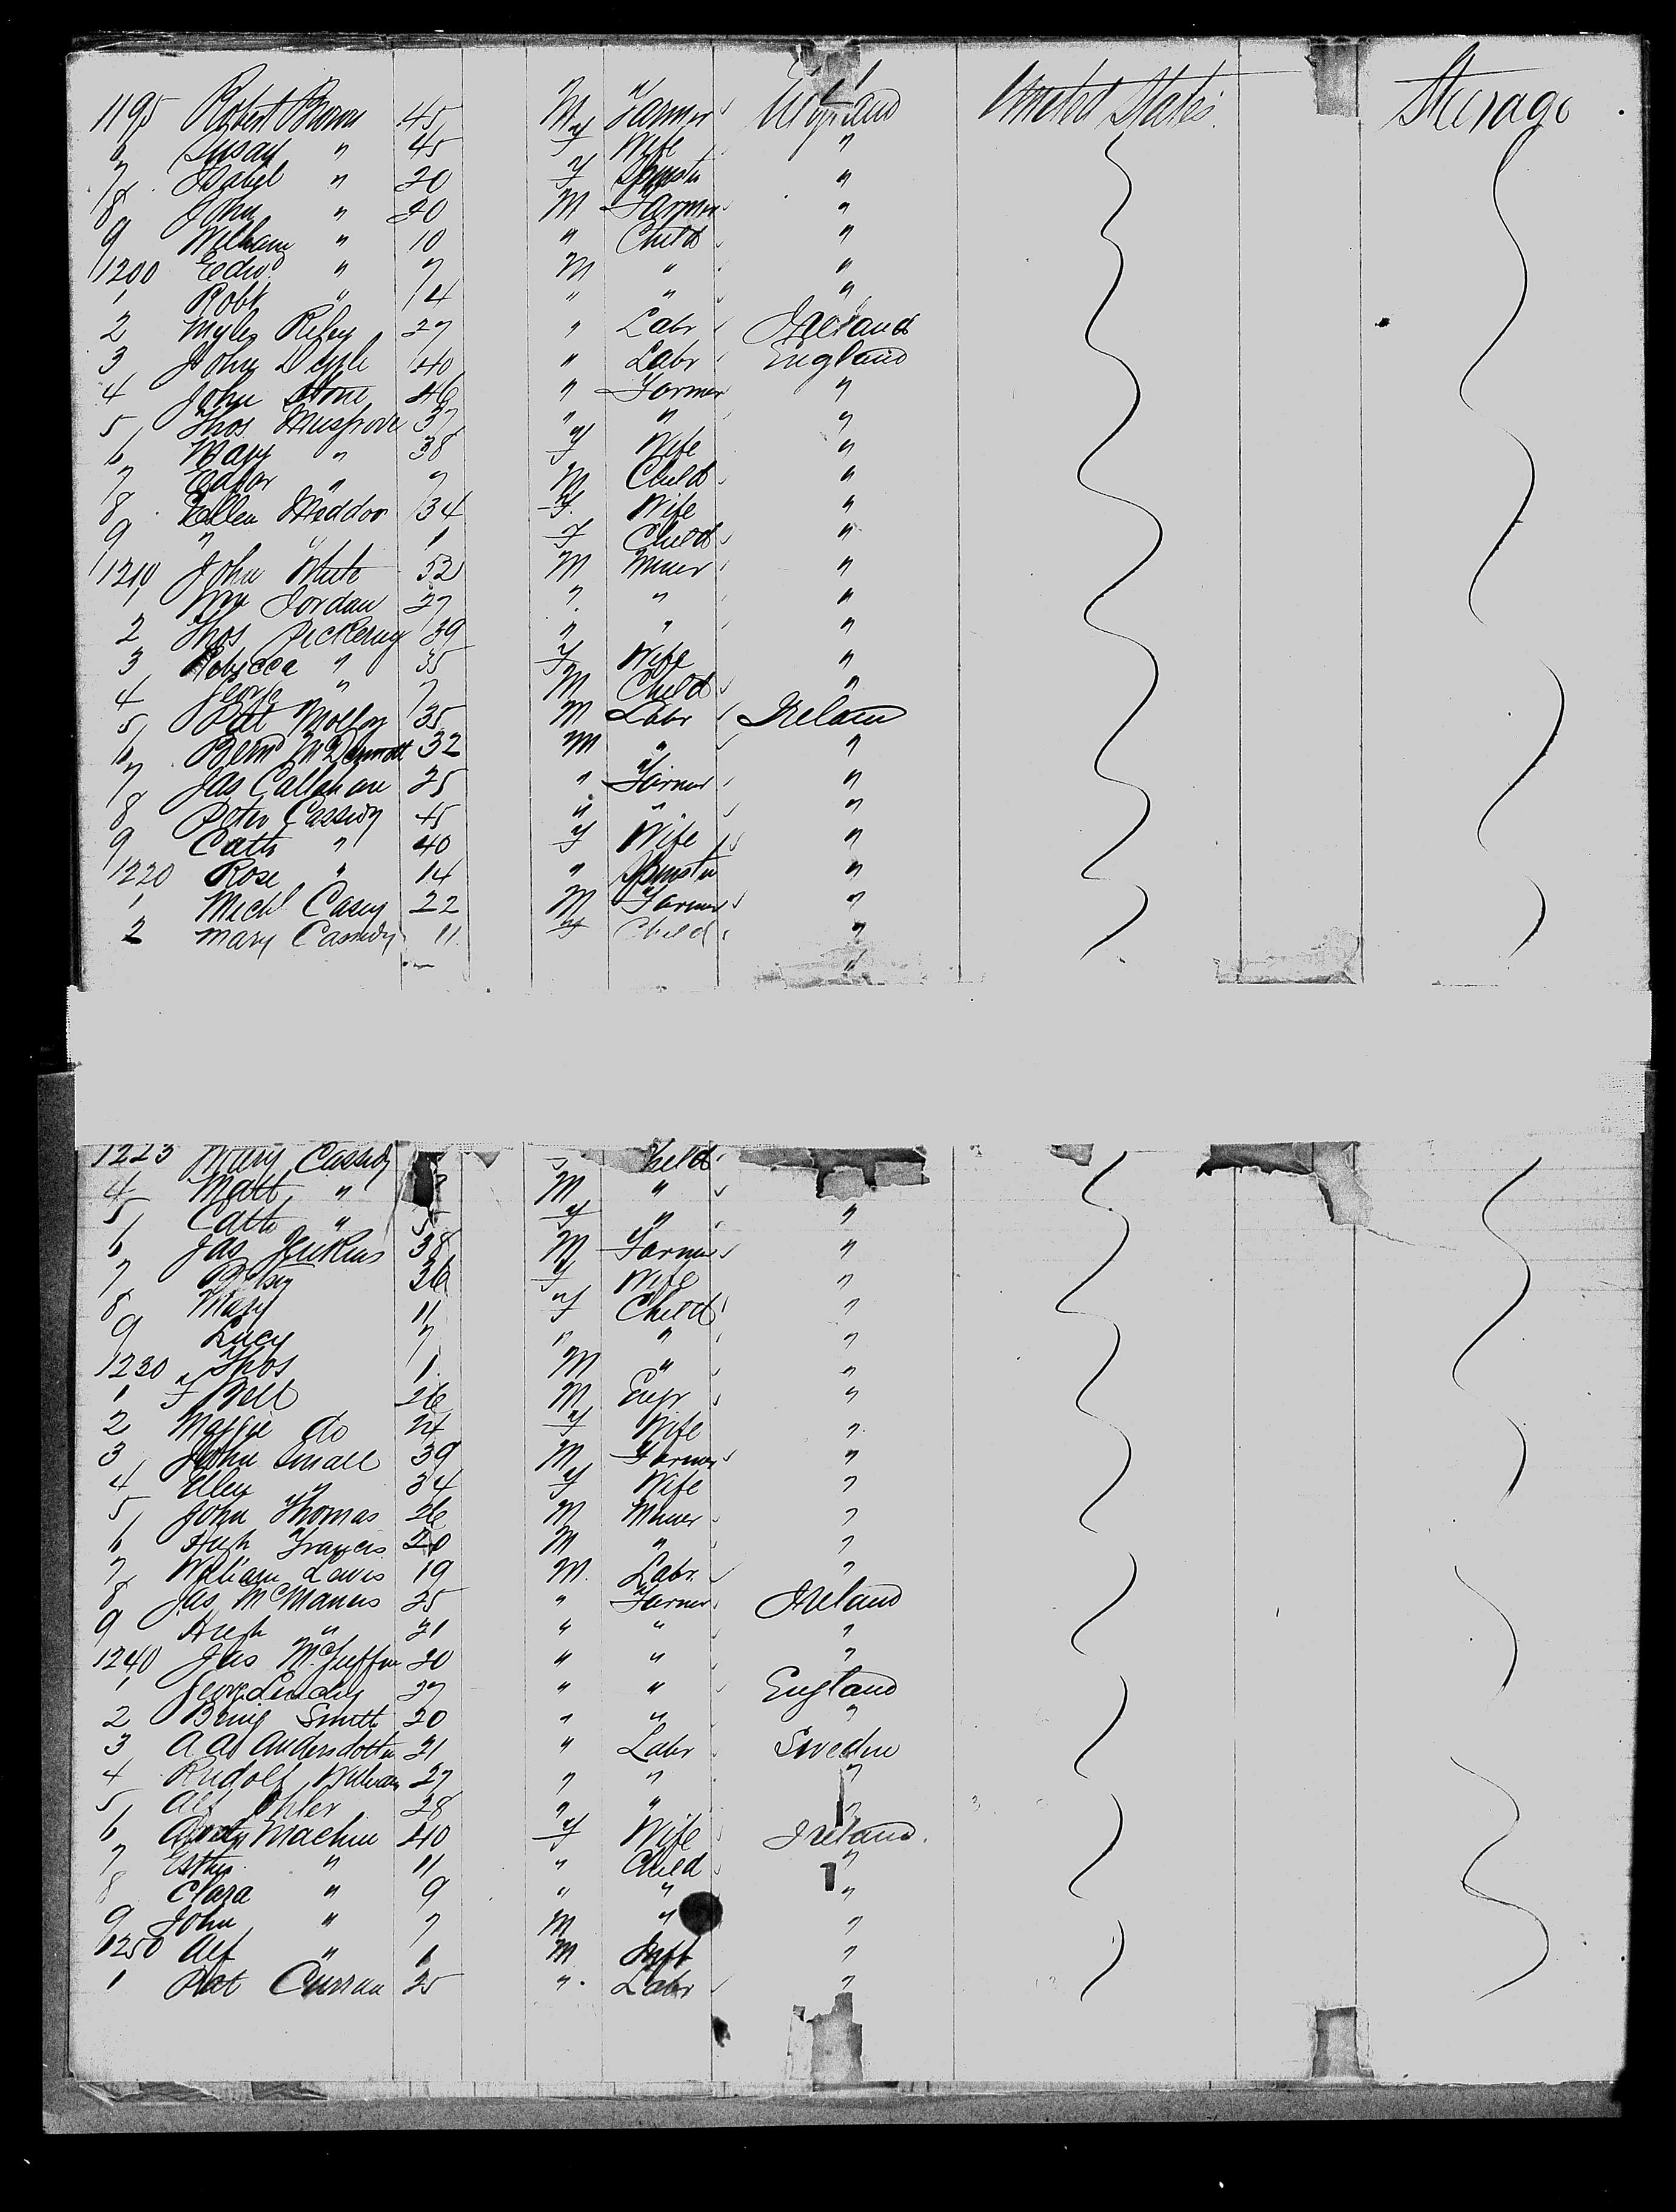 1195 Robert Brown 45 M Farmer England United States Steerage
6 Susan " 45 F Wife "
7 Isabel " 20 F Spinster "
8 John " 20 M Farmer "
9 William " 10 " Child "
1200 Edw " 7 M " "
1 Robt " 14 " " "
2 Myles Riley 27 " Labr Ireland
3 John Doyle 40 " Labr England
4 John Stone 46 " Farmer "
5 Thos Musgrove 37 " " "
6 Mary " 38 F Wife "
7 Edgar " 7 M Child "
8 Ellen 34 F Wife "
9 " " 1 F Child "
1210 John White 52 M Miner "
1 Wm Jordan 27 " " "
2 Thos Pickering 39 " " "
3 Rebecca " 35 F Wife "
4 George " 7 M Child "
5 Pat Molloy 35 M Labr Ireland
6 Bernd McDermott 32 M " "
7 Jas Callahan 25 " Farmer "
8 Peter Cassidy 45 " " "
9 Cath " 40 F Wife "
1220 Rose " 14 " Spinster "
1 Michl Casey 22 M Farmer "
2 Mary Cassidy 11 F Child "
"
1223 Mary Cassidy Child
4 Matt " M "
5 Cath " 5 F " "
6 Jas Jenkins 38 M Farmer "
7 Betsy 36 F Wife "
8 Mary 11 F Child "
9 Lucy 7 " " "
1230 Thos 1 M " "
1 F Bell 26 M Engr "
2 Maggie do 24 F Wife "
3 John Small 39 M Farmer "
4 Ellen " 34 F Wife "
5 John Thomas 26 M Miner "
6 Hugh Francis 20 M " "
7 William Lewis 19 M Labr "
8 Jas McManus 25 " Farmer Ireland
9 Hugh " 21 " " "
1240 Jas McGuffin 20 " " "
1 George 27 " " England
2 Benj Smith 20 " " "
3 A A Andersdotter 21 " Labr Sweden
4 Rudolf William 27 " " "
5 Alf Ohler 28 " " "
6 Machin 40 F Wife Ireland
7 Esther " 11 " Child "
8 Clara " 9 " " "
9 John " 7 M " "
1250 Alf " 1 M Inft "
1 Pat Curran 25 " Labr "